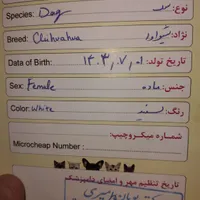 Species: Dog سگ نوع:
Breed: Chihuahua شیواوا نژاد:
Date of Birth: ۱۴۰۳،۷،۰۱ تاریخ تولد:
Sex: Female ماده جنس:
Color: White سفید رنگ:
شماره میکروچیپ:
Microcheap Number:
تاریخ تنظیم مهر و امضای دامپزشک
دکتر